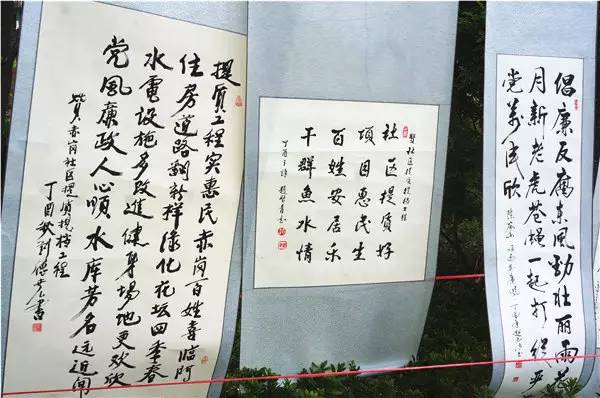 提质工程实惠民赤岗百姓喜临门
住房道路翻新样绿化花坛四季春
水電设施多改進健身场地更欢欣
党風廉政人心顺水库芳名远迩闻
贺赤岗社区提质提档工程
丁酉秋刘
书
贺社区提质提档工程
社区提質好
項目惠民生
百姓安居乐
干群魚水情
丁酉
倡廉反腐东風劲壮丽雨花
月新老虎苍蝇一起打從严
党萬民欣